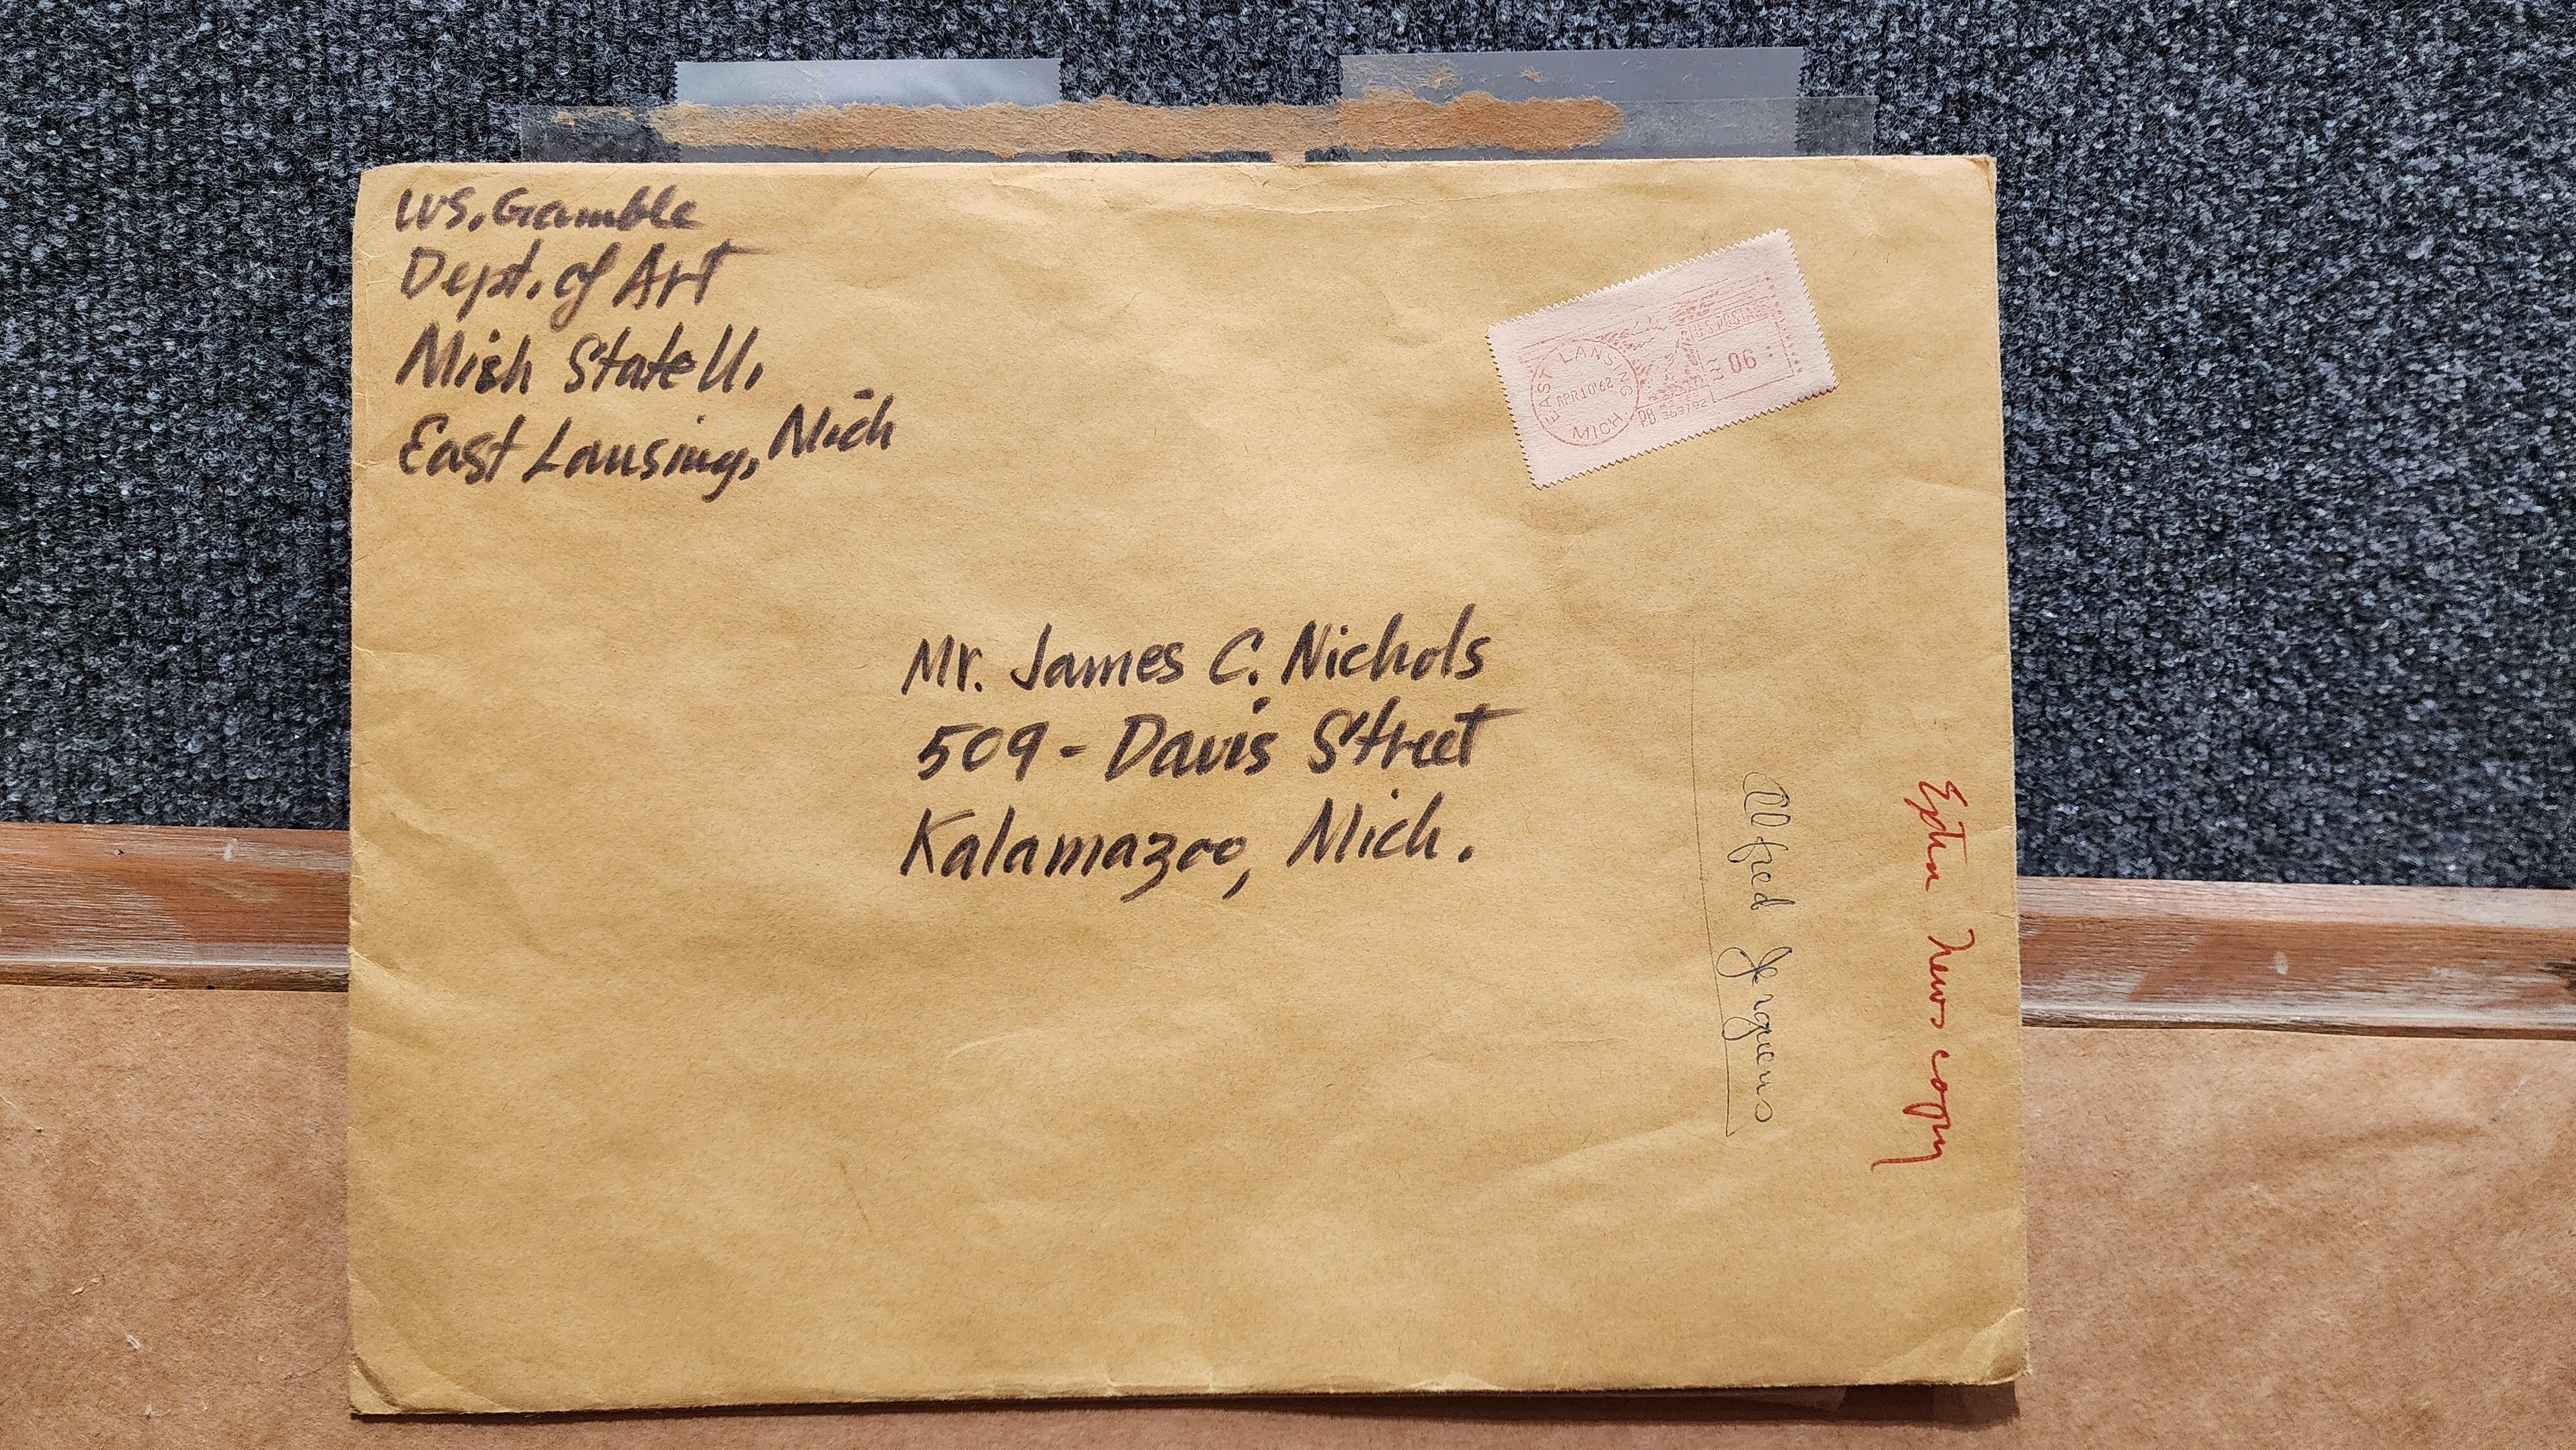 WS. Gamble
Dept. of Art
Mich State U.
East Lansing, Mich
U.S. POSTAGE
EAST LANSING
APR 10 '62
MICH
06
PB 363792
Mr. James C. Nichols
509 - Davis Street
Kalamazoo, Mich.
Alfred Jergens
Extra news copy